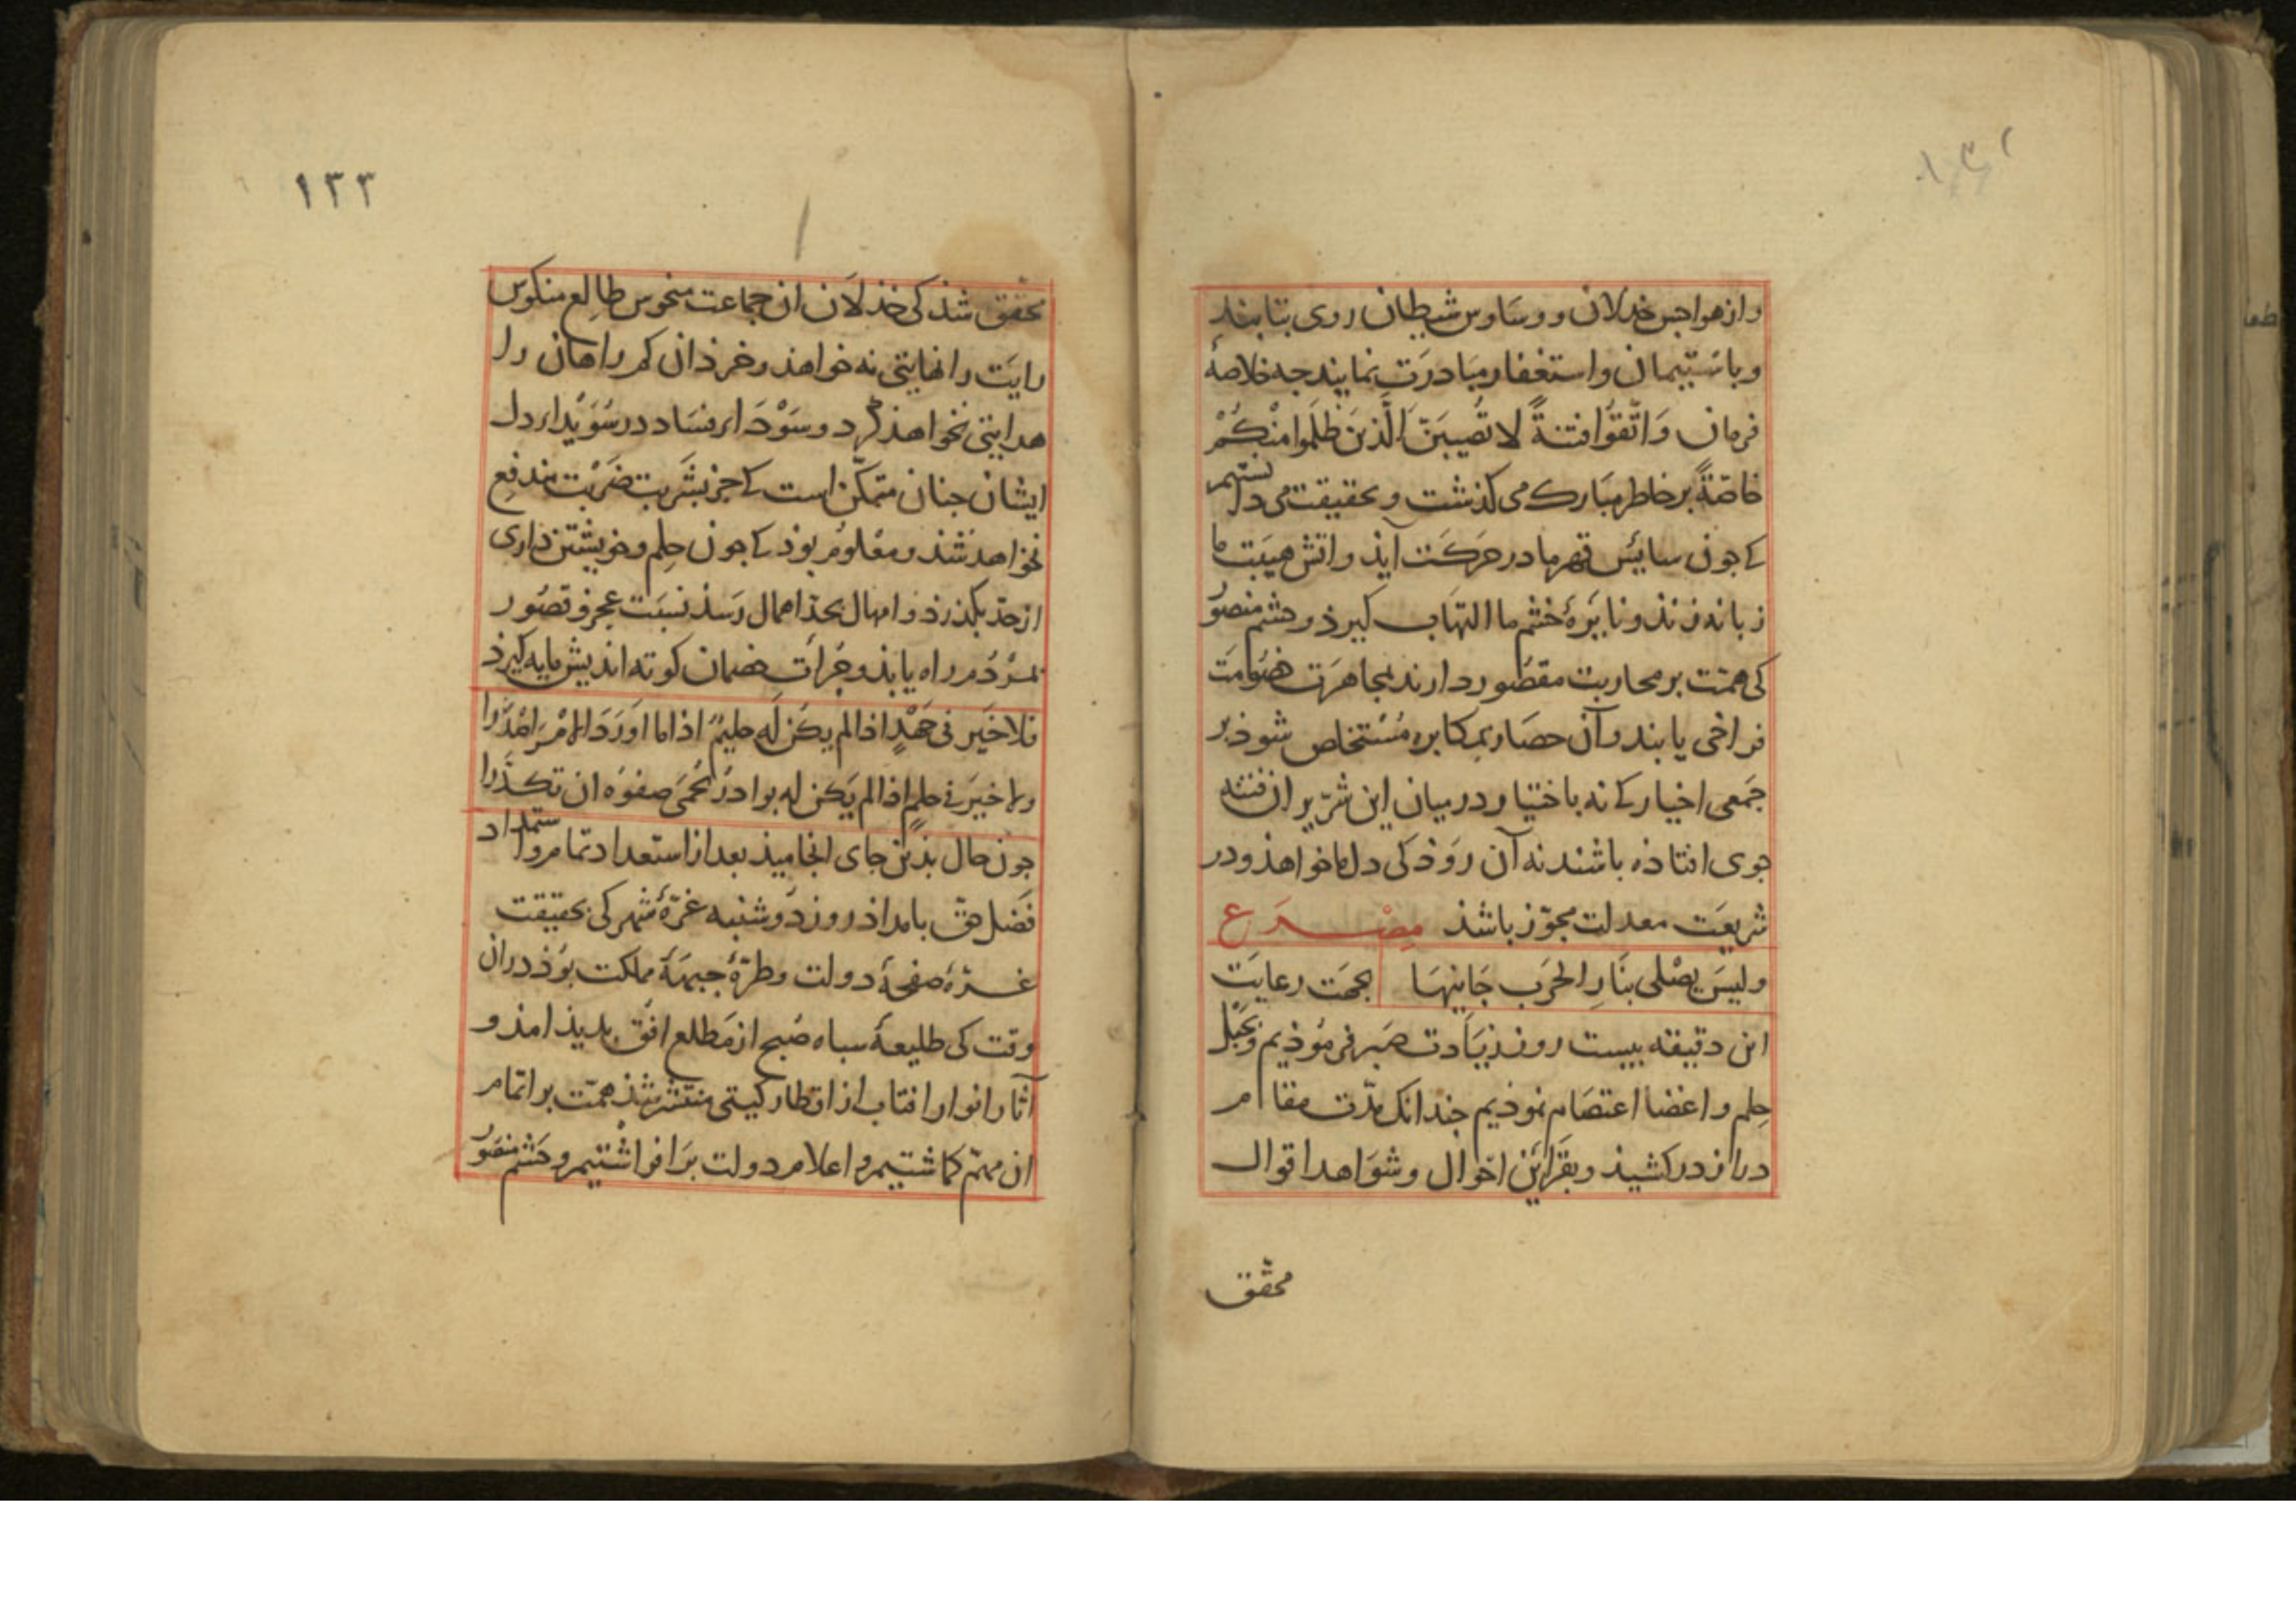 وازهواجس خذلان ووساوس شیطان روی بتابند
وباستیمان واستغفار مبادرت نمایند جه خلاصهٔ
فرمان وَاتَّقوُا فتنةً لا تُصیبَنَّ الَّذینَ ظَلَموا مِنْكُمْ
خاصّةً بر خاطر مبارک می کذشت وبحقیقت می دانستیم
کے جون سایس قهر ما در حرکت آیذ واتش هیبت ما
زبانه زنذ ونایرهٔ خشم ما التهاب کیرذ وحشم منصور
کی همّت بر محاربت مقصور دارند بمجاهرت خصومت
فراخی یابند وآن حصار بمکابره مستخلص شوذ بر
جمعی اخیار کے نه باختیار در میان این شرّیران فتنه
جوی افتاذه باشند نه آن روذ کی دل ما خواهذ ودر
شریعَت معدلت مجوّز باشذ مصْرَع
ولیسَ یصْلی بنَارِ الحَرَب جَانیهَا بجهت رعایَت
این دقیقه بیست روز زیَادت صَبر فرموذیم وبحَبْل
حِلم واغضا اعتصَام نموذیم جندانک مدّت مقام
دراز درکشیذ وبقَراین احوال وشوَاهد اقوال
محقّق
۱۳۳
محقّق شذ کی خذلَان ان جماعت منحوس طالِع منکوس
رایَت را نهایتی نه خواهذ وخرذ ان کم راهان را
هدایتی نخواهذ کرد وسَوْدَاء فسَاد در سُوَیْداء دل
ایشان جنان متمکّن است کے جز بشَربت ضَرْبت مندفِع
نخواهد شذ ومعْلوم بوذ کے جون حِلم وخویشتن داری
از حدّ بکذرذ وامهال بحدّ اهمال رَسذ نسبَت عجز وقصُور
بمَرْدُم راه یابذ وجُرأت خصمان کوته اندیش مایه کیرذ
فلا خَیرَ فی جَهْلٍ اذا لم یکن لَه حلیمٌ اذا ما اَورَدَ الامْرَ اصْدَرا
ولا خیرَ فی حلمٍ اذا لم یَکن له بوادرُ تحْمَی صفوَه ان تکدَّرا
جون حال بذین جای انجامیذ بعد از استعداد تمام واستمداد
فضل حق بامداذ روز دوشنبه غرّهٔ شهر کی بحقیقت
غرّهٔ صفحهٔ دولت وطرّهٔ جبهَهٔ مملکت بوَذ دران
وقت کی طلیعهٔ سباه صُبح از مَطلع افق بدیذ امذ و
آثار انوار افتاب از اقطار کیتی منتشر شذ همّت بر اتمام
ان مهمّ کماشتیم واعلام دولت بَرافراشتیم وحَشم منصُور